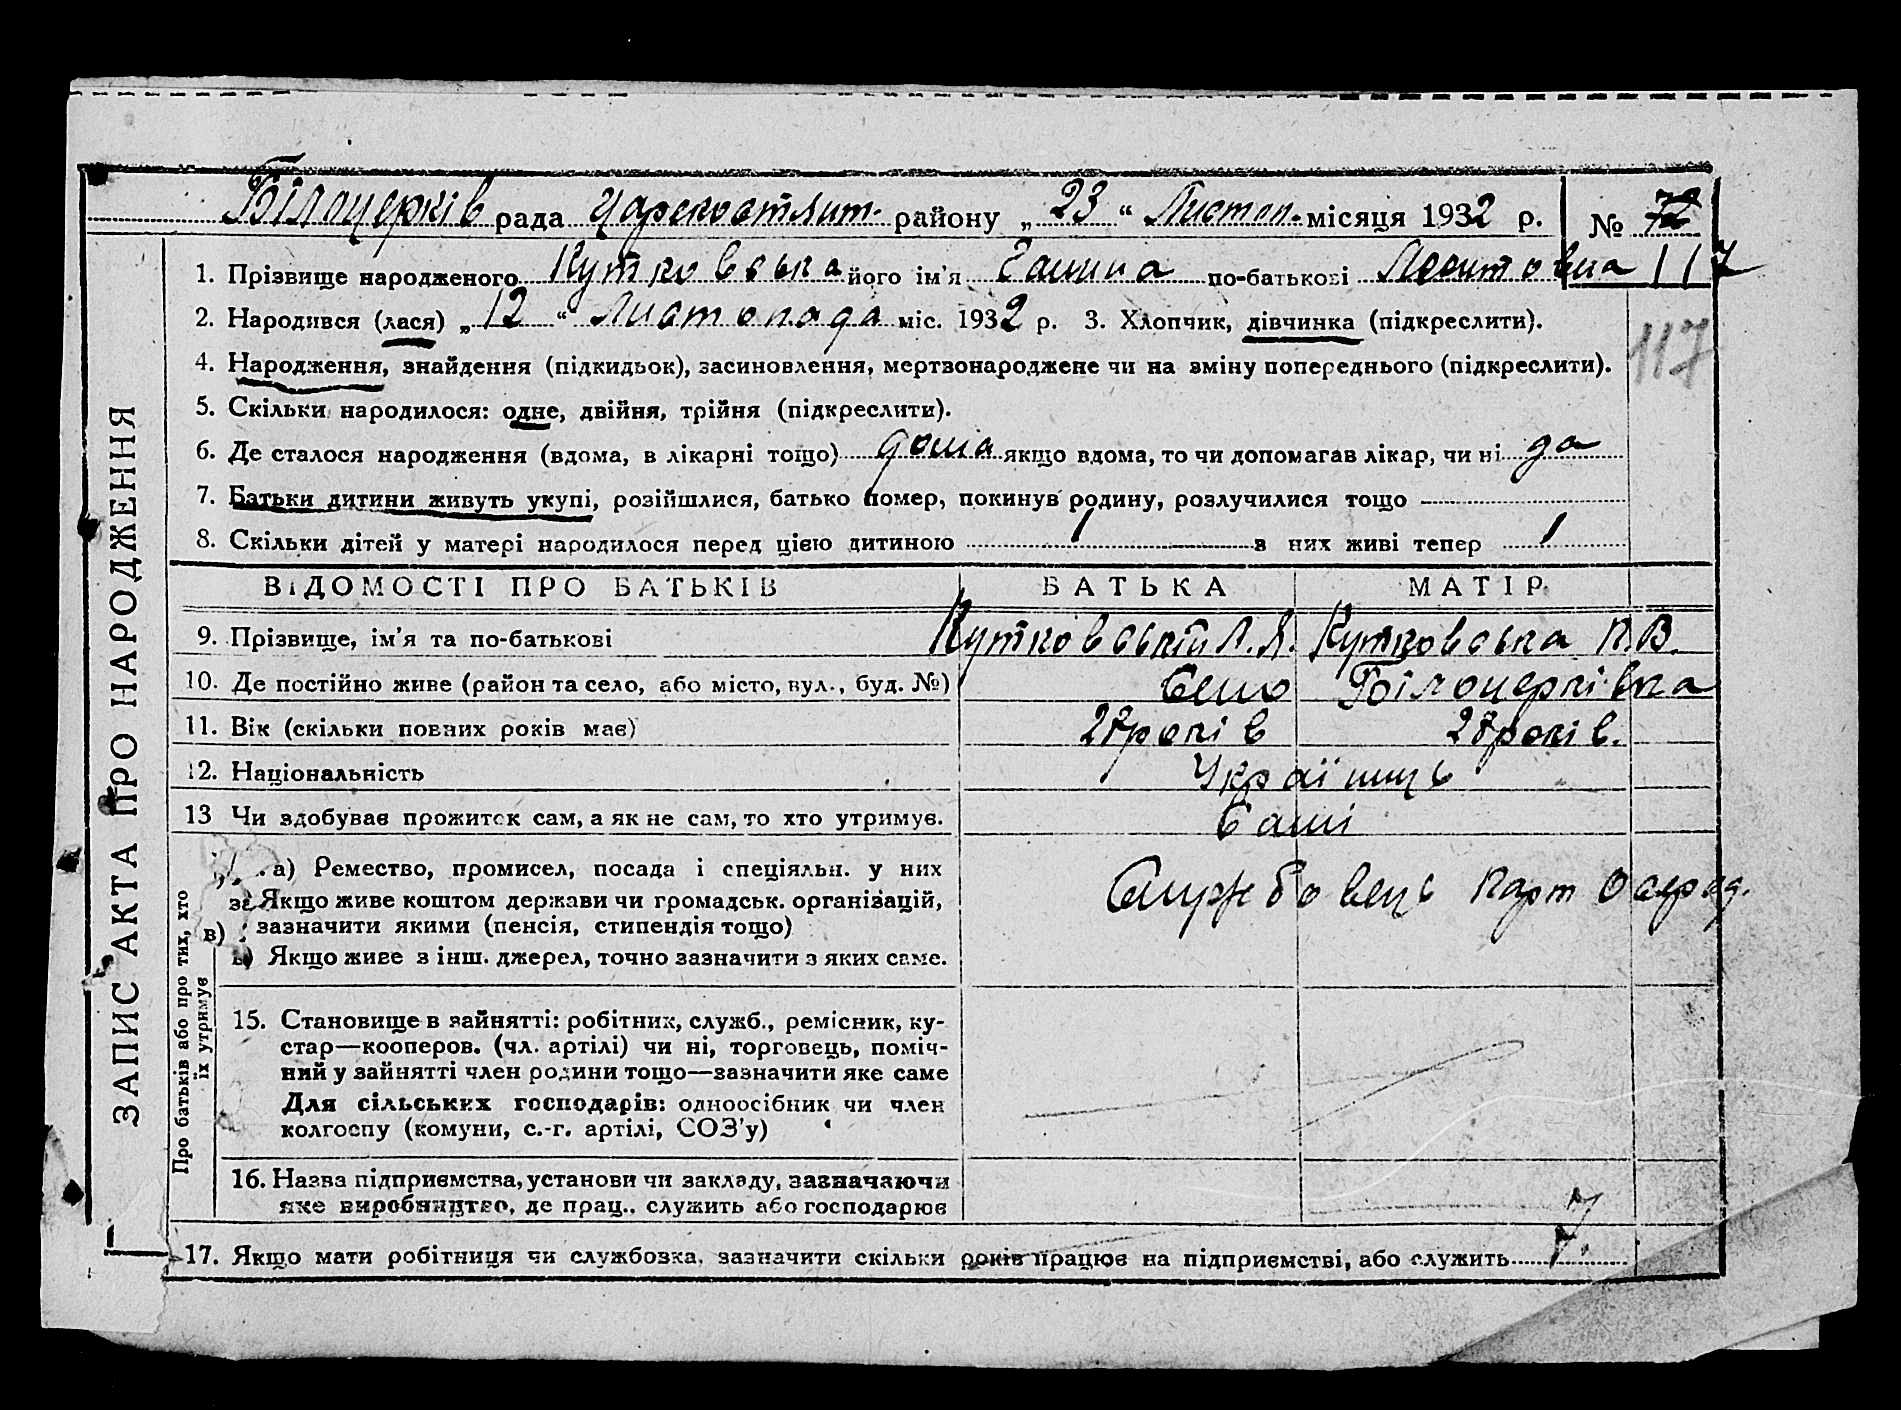 Білоцерків рада Царекостянт. району „ 23 “ Листоп. місяця 1932 р. № 72
1. Прізвище народженого Кутковська його ім'я Ганна по-батькові 117
2. Народився (лася) „ 12 “ Листопада міс. 1932 р. 3. Хлопчик, дівчинка (підкреслити).
117
4. Народження, знайдення (підкидьок), засиновлення, мертвонароджене чи на зміну попереднього (підкреслити).
5. Скільки народилося: одне, двійня, трійня (підкреслити).
6. Де сталося народження (вдома, в лікарні тощо) дома якщо вдома, то чи допомагав лікар, чи ні да
7. Батьки дитини живуть укупі, розійшлися, батько помер, покинув родину, розлучилися тощо
8. Скільки дітей у матері народилося перед цією дитиною 1 з них живі тепер 1
ЗАПИС АКТА ПРО НАРОДЖЕННЯ
ВІДОМОСТІ ПРО БАТЬКІВ БАТЬКА МАТІР
9. Прізвище, ім'я та по-батькові Кутковський Л.Л. Кутковська П.В.
10. Де постійно живе (район та село, або місто, вул., буд. №) Село Білоцерківка
11. Вік (скільки повних років має) 27 років 28 років.
12. Національність Українць
13 Чи здобував прожиток сам, а як не сам, то хто утримує. Самі
Про батьків або про тих, хто їх утримує
а) Ремество, промисел, посада і спеціяльн. у них
Якщо живе коштом держави чи громадськ. організацій, Службовець парт осеред.
в) зазначити якими (пенсія, стипендія тощо)
в) Якщо живе з інш. джерел, точно зазначити з яких саме.
15. Становище в зайнятті: робітник, служб., ремісник, ку-
стар—кооперов. (чл. артілі) чи ні, торговець, поміч-
ний у зайнятті член родини тощо—зазначити яке саме
Для сільських господарів: одноосібник чи член
колгоспу (комуни, с.-г. артілі, СОЗ'у)
16. Назва підприємства, установи чи закладу, зазначаючи
яке виробництво, де прац., служить або господарює
17. Якщо мати робітниця чи службовка, зазначити скільки років працює на підприємстві, або служить